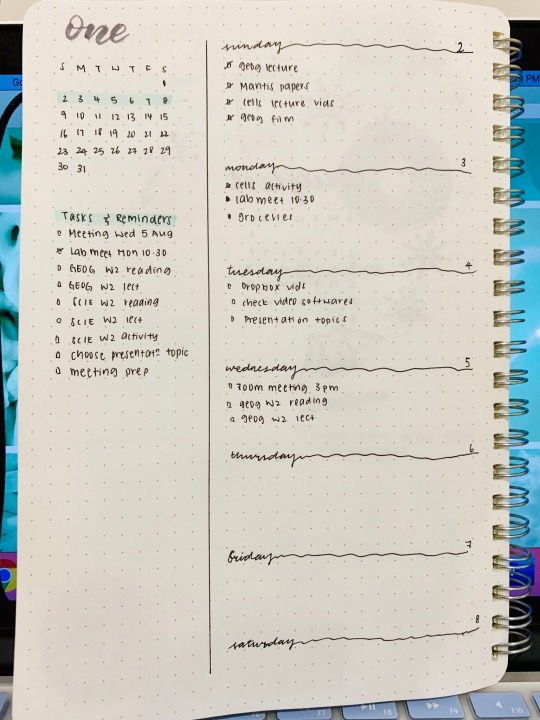 one
S M T W T F S
1
2 3 4 5 6 7 8
9 10 11 12 13 14 15
16 17 18 19 20 21 22
23 24 25 26 27 28 29
30 31
Tasks & Reminders
Meeting Wed 5 Aug
Lab meet Mon 10:30
GEOG W2 reading
GEOG W2 lect
SCIE W2 reading
SCIE W2 lect
SCIE W2 activity
choose presentatn topic
meeting prep
sunday 2
geog lecture
Mantis papers
cells lecture vids
geog film
monday 3
cells activity
lab meet 10:30
groceries
tuesday 4
Dropbox vids
check video softwares
Presentation topics
wednesday 5
zoom meeting 3pm
geog W2 reading
geog W2 lect
thursday 6
friday 7
saturday 8
F8
F9
F10